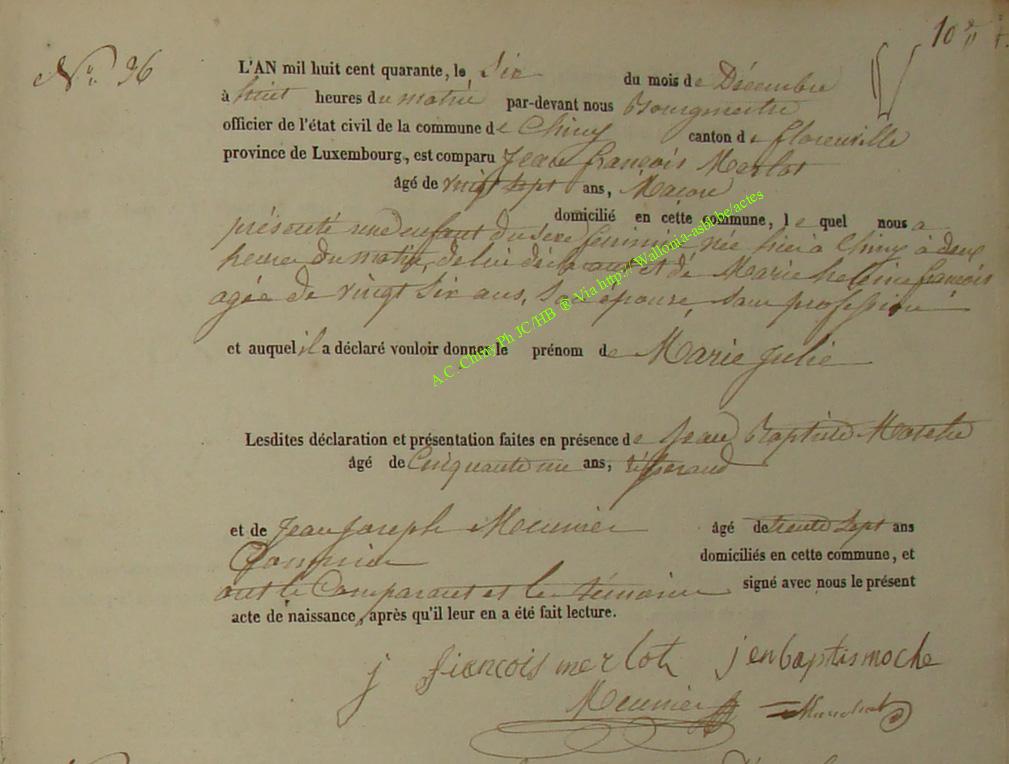 10
N° 36
L'AN mil huit cent quarante, le Six du mois de Décembre
à huit heures du matin par-devant nous Bourgmestre
officier de l'état civil de la commune de Chiny canton de florenville
province de Luxembourg, est comparu Jean françois Merlot
âgé de vingt sept ans, Maçon
domicilié en cette commune, le quel nous a
présenté une enfant du sexe féminin, née hier à Chiny à deux
heures du matin, de lui déclarant et de Marie hellene françois
agée de vingt six ans, son épouse, sans profession
et auquel il a déclaré vouloir donner le prénom de Marie Julie
Lesdites déclaration et présentation faites en présence de Jean Baptiste
âgé de Cinquante un ans, tisserand
et de Jean Joseph Meunier âgé de trente sept ans
domiciliés en cette commune, et
ont le Comparant et les témoins signé avec nous le présent
acte de naissance, après qu'il leur en a été fait lecture.
j françois merlot j en baptis moche
Meunier
A.C. Chiny Ph JC/HB ® Via http://Wallonia-asbl.be/actes